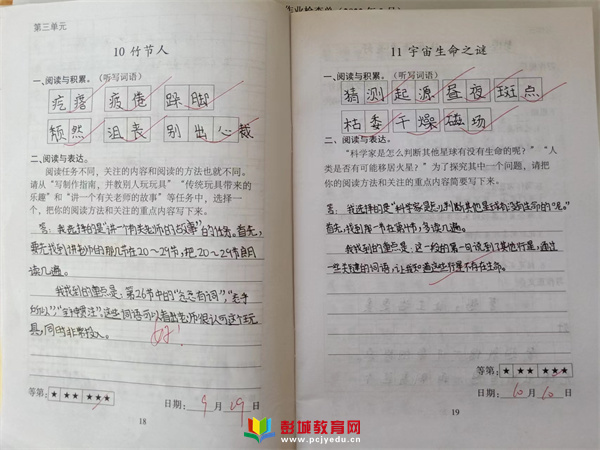 第三单元
10 竹节人
一、阅读与积累。（听写词语）
疙瘩 疲倦 跺脚
颓然 沮丧 别出心裁
二、阅读与表达。
阅读任务不同，关注的内容和阅读的方法也就不同。
请从“写制作指南，并教别人玩玩具”“传统玩具带来的
乐趣”和“讲一个有关老师的故事”等任务中，选择一
个，把你的阅读方法和关注的重点内容写下来。
答：我选择的是“讲一个有关老师的故事”的任务。首先，
要先找到讲老师的那几节在20～29节，把20～29节自己
读几遍。
我找到的重点是：第26节中的
这些词语可以看出老师很认可这个玩
具，同时非常投入。
好！
等第：★ ★★ ★★★
日期：9月19日
18
11 宇宙生命之谜
一、阅读与积累。（听写词语）
猜测 起源 昼夜 斑点
枯萎 干燥 磁场
二、阅读与表达。
“科学家是怎么判断其他星球有没有生命的呢？”“人
类是否有可能移居火星？”为了探究其中一个问题，请把
你的阅读方法和关注的重点内容简要写下来。
答：我选择的是“科学家是怎么判断其他星球有没有生命的呢。”
首先，找到那一节在第几节，多读几遍。
我找到的重点是：这一段的第一句说到了其他行星，通过
一些关键的词语，让我知道这些行星不存在生命。
等第：★ ★★ ★★★
日期：10月10日
19
彭城教育网
www.pcjyedu.cn